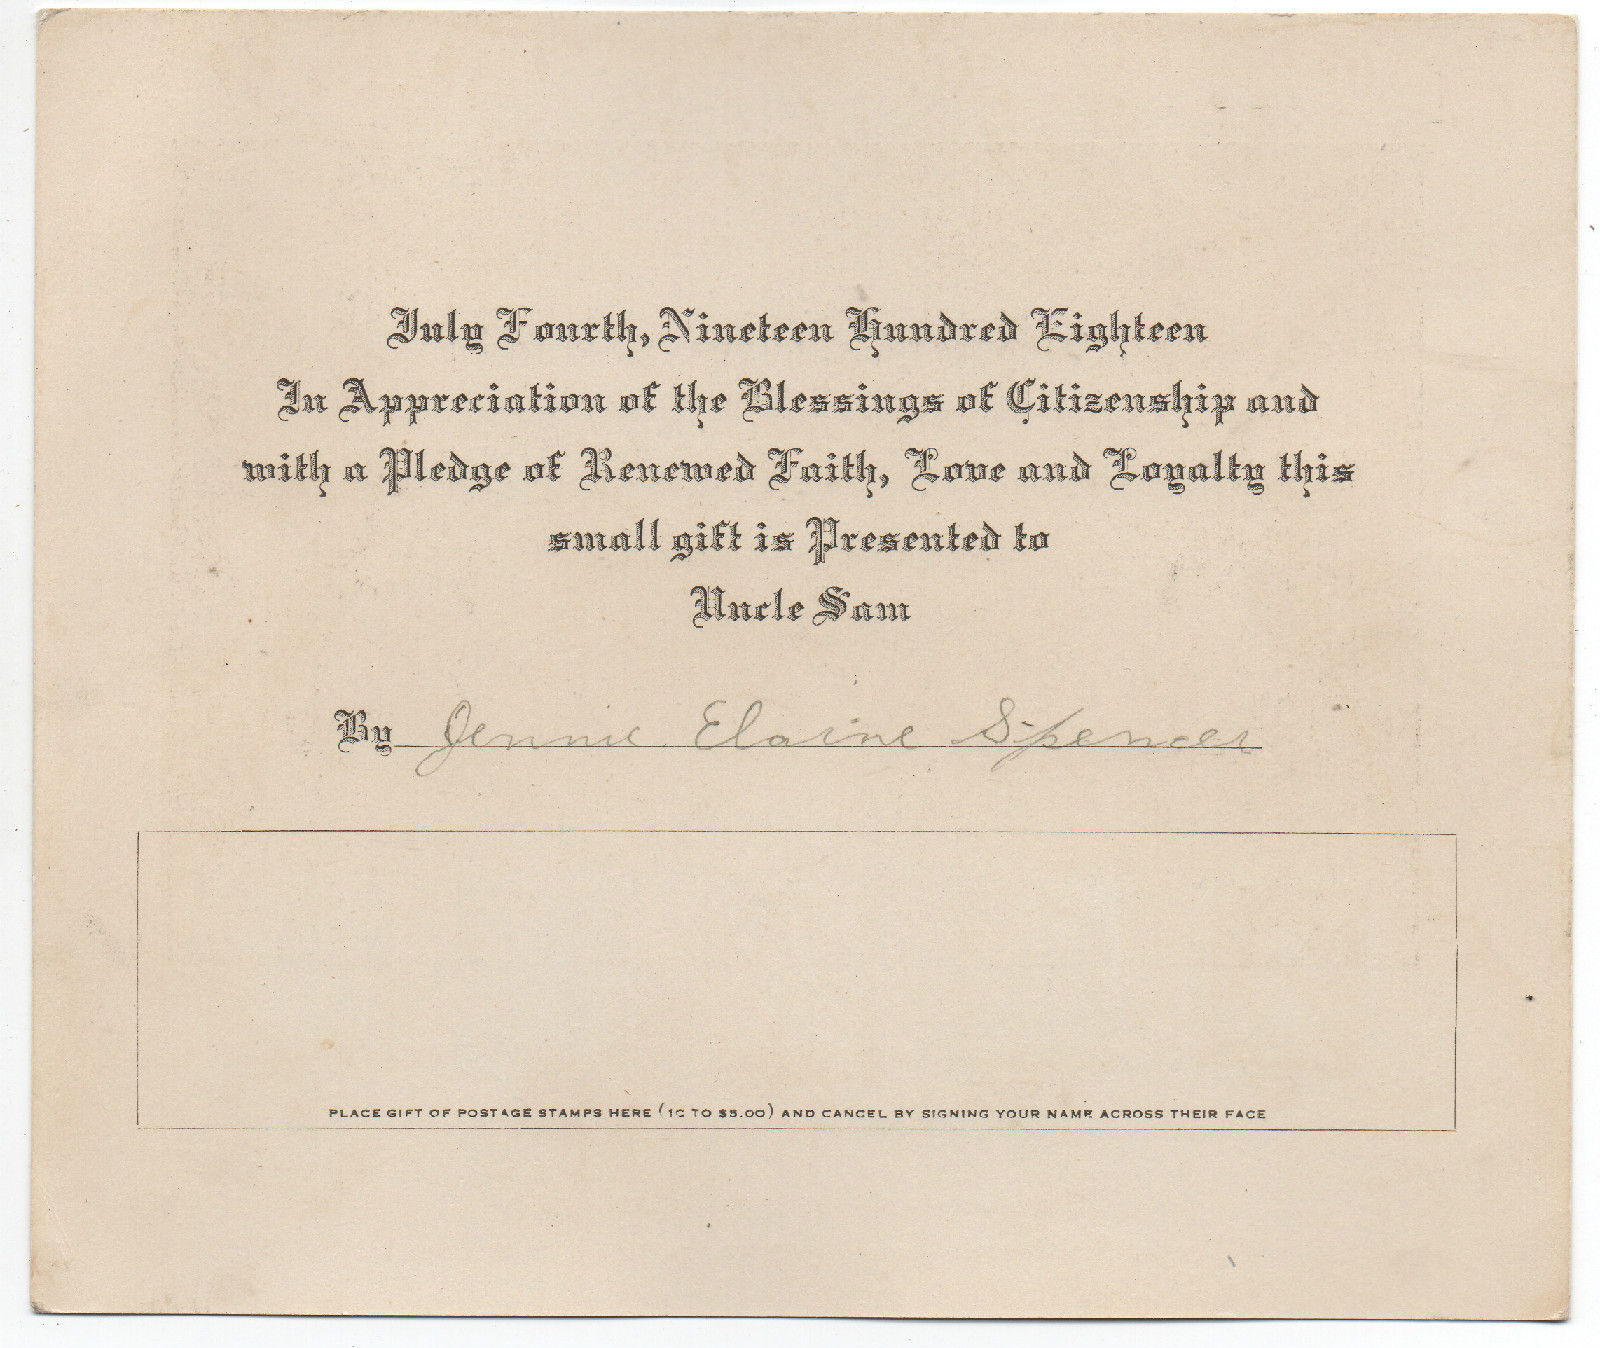 July Fourth, Nineteen Hundred Eighteen
In Appreciation of the Blessings of Citizenship and
with a Pledge of Renewed Faith, Love and Loyalty this
small gift is Presented to
Uncle Sam
By Jennie Elaine Spencer
PLACE GIFT OF POSTAGE STAMPS HERE (1C TO $5.00) AND CANCEL BY SIGNING YOUR NAME ACROSS THEIR FACE